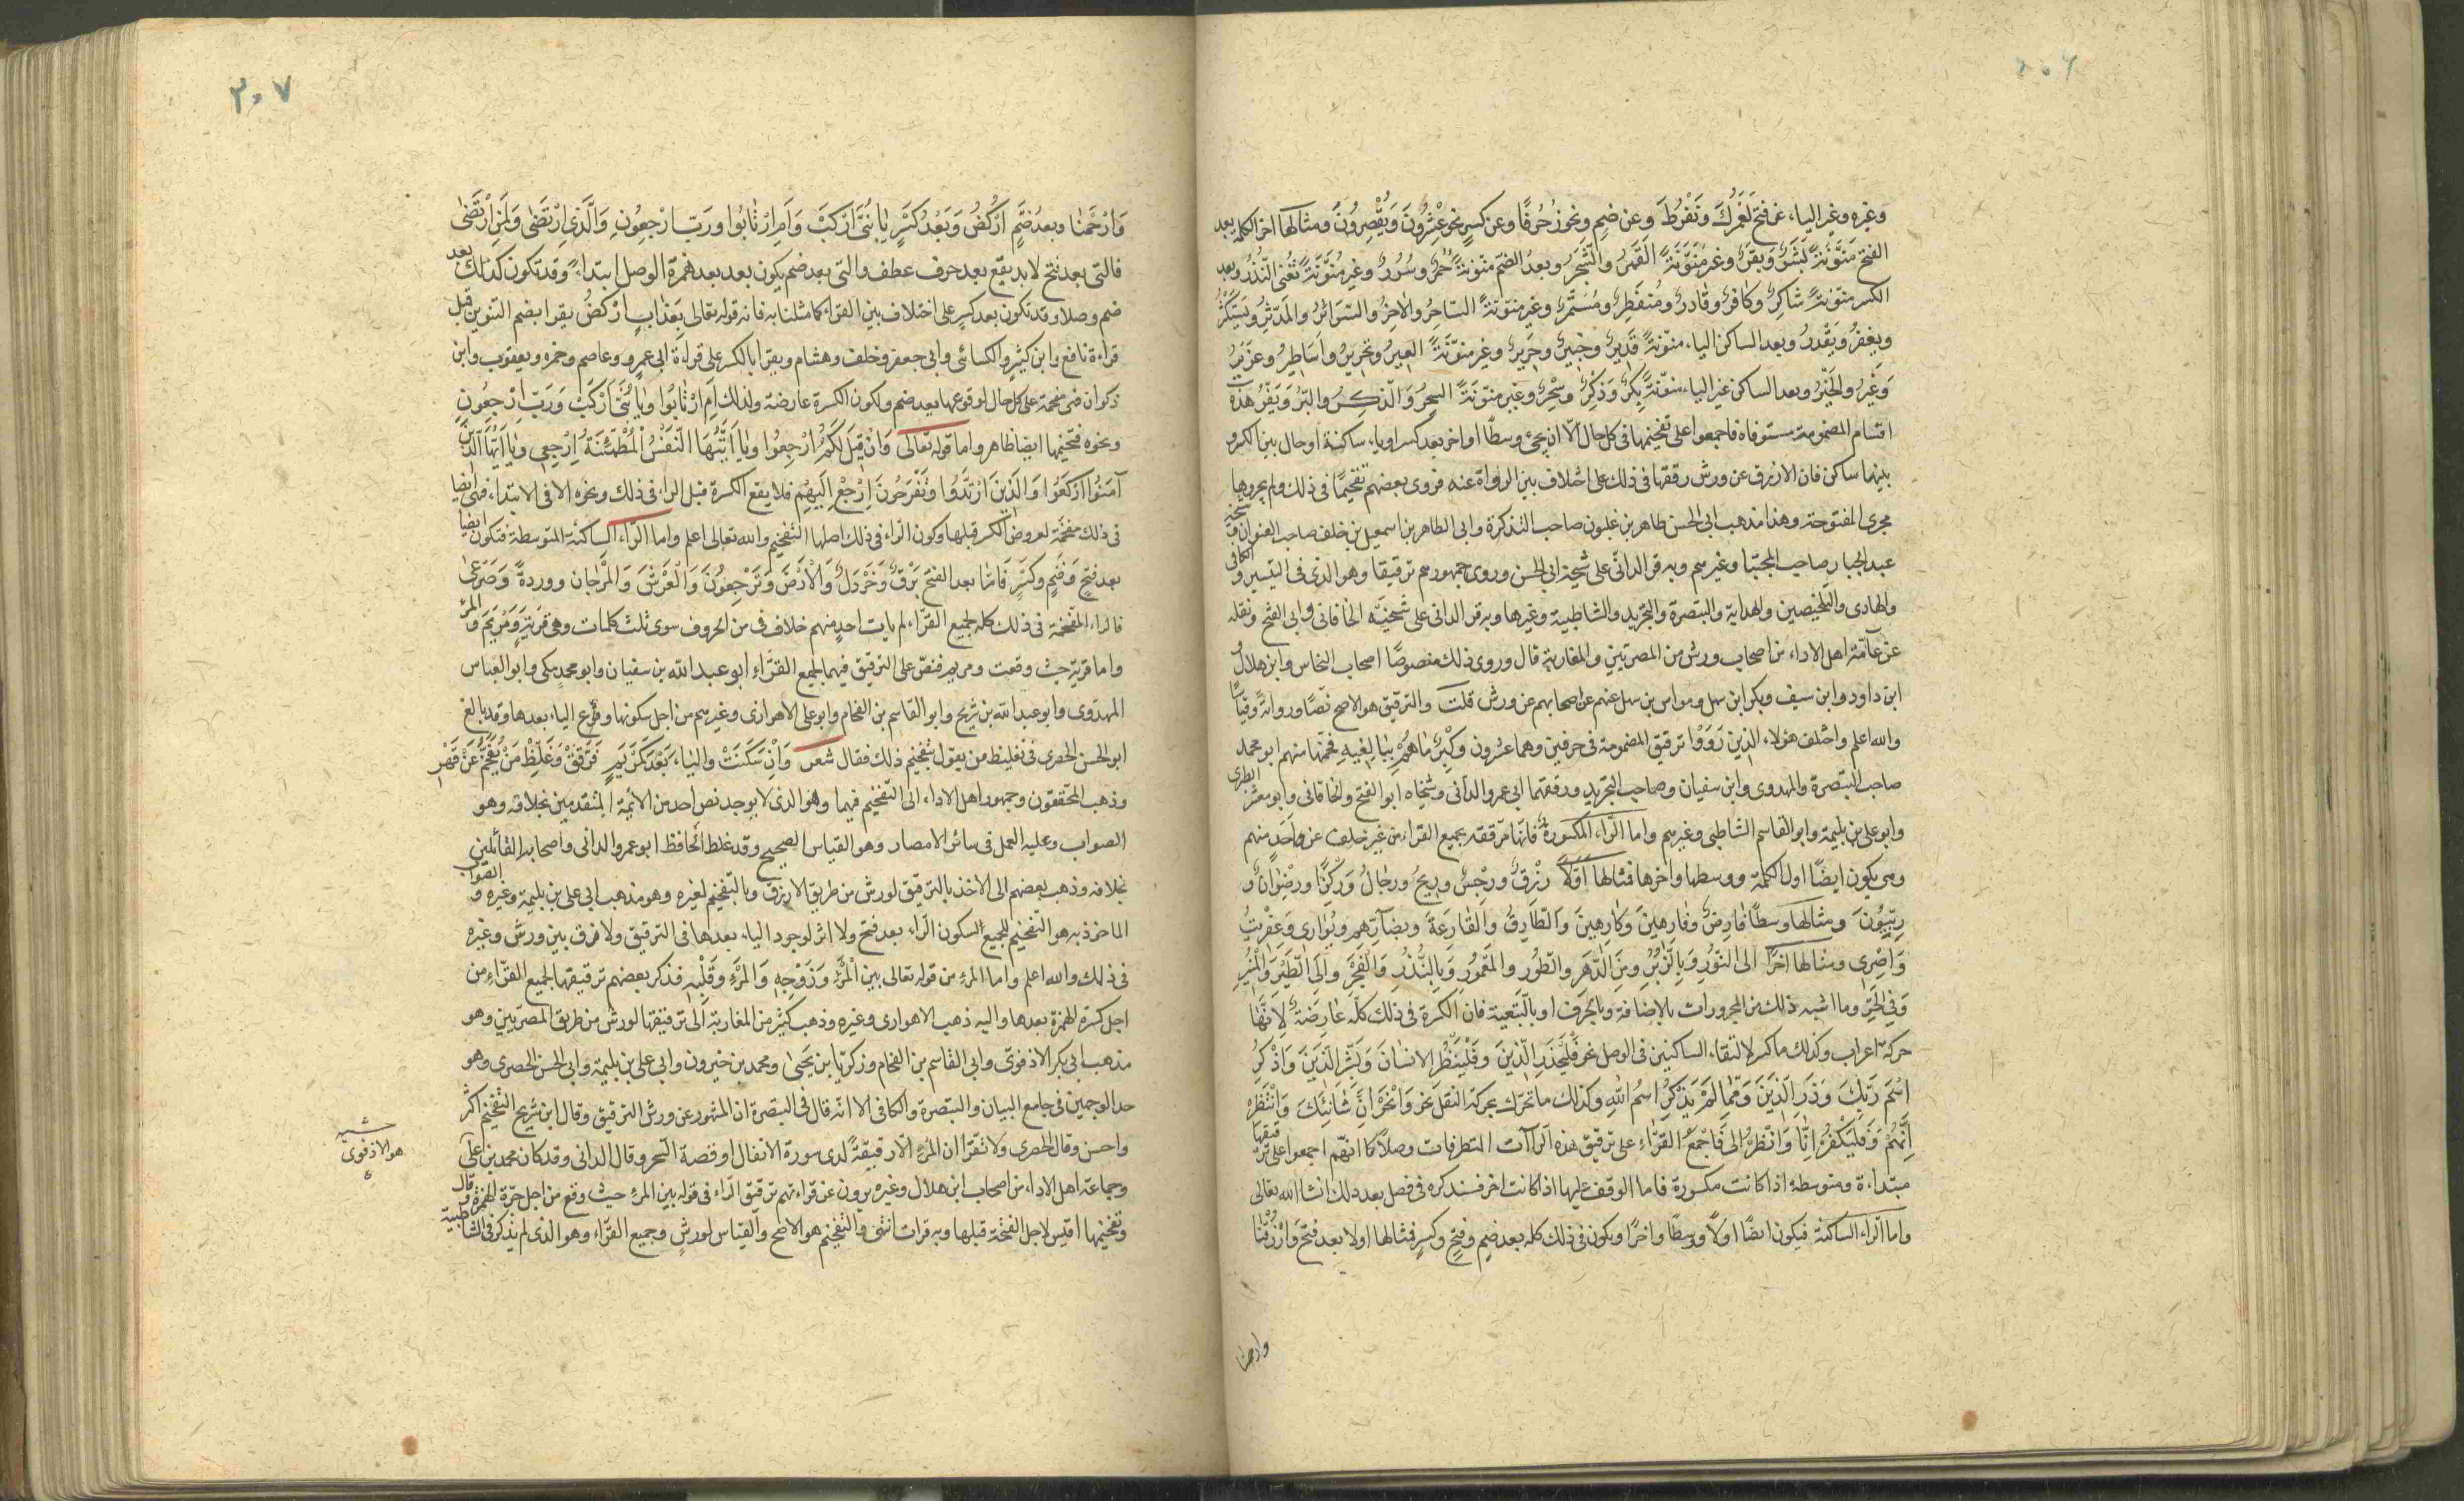 ٢٠٦
وغيره وغير الياء، عن فتح لَعَمْرُكَ وَنَفْرُطَ وعن ضم ونحو زُخرُفًا وعن كسر نحو عِشْرُونَ وَيُقْصِرُونَ ومثالها اخر الكلمة بعد
الفتح منَوَّنةً بَشَرٌ وَبَقَرٌ وغير مُنَوَّنَةً القَمَرُ والشَّجَرُ وبعد الضم منونةً حُمُرٌ وسُرُرٌ وغير مُنَوَّنَةً تُغْنِ النُّذُرُ وبعد
الكسر منوّنةً شاكرٌ وكافرٌ وقادرٌ ومُنفَطِرٌ ومُستَمِرٌّ وغير منوّنةً السَّاحِرُ والآخِرُ والسَّرَائرُ والمدّثرُ ويَسْتَكْثِرُ
ويغفرُ ويَقْدِرُ وبعد الساكن الياء، منوّنةً قَدِيرٌ وخَبيرٌ وحَرِيرٌ وغير منوّنَةً العِيرُ وتحريرُ وأَسَاطِيرُ وعُزَيرُ
وَغَيرُ والخَيْرُ وبعد الساكن غير الياء، منوّنةً بِكرٌ وذِكْرٌ وسِحْرٌ وغير منوّنَةً السِحْرُ وَالذِّكرُ والبِرُّ وَيَفِرُّ هذه
اقسام المضمومة مستوفاة فاجمعوا على تفخيمها فى كل حال الّا ان يجئ وسطًا او اخر بعد كسر او ياء، ساكنة او حال بين الكسر و
بينها ساكن فان الازرق عن ورش رققها فى ذلك على اختلاف بين الرواة عنه فروى بعضهم تفخيمًا فى ذلك ولم يجروها
مجرى المفتوحة وهذا مذهب ابى الحسن طاهر بن غلبون صاحب التذكرة وابى الطاهر بن اسمعيل بن خلف صاحب العنوان وشيخه
عبد الجبار صاحب المجتبا وغيرهم وبه قرا الدانى على شيخه ابى الحسن وروى جمهورهم ترقيقا وهو الذى فى التيسير والكافى
والهادى والتلخيصين والهداية والتبصرة والتجريد والشاطبية وغيرها وبه قرا الدانى على شيخيه الخاقانى وابى الفتح ونقله
عن عامّة اهل الاداء من اصحاب ورش من المصريين والمغاربة قال وروى ذلك منصوصًا اصحاب النخاس وابن هلال و
ابن داود وابن سيف وبكر ابن سهل ومواس بن سهل عنهم عن اصحابهم عن ورش قلت والترقيق هو الاصح نصًّا ورواية وقياسًا
والله اعلم واختلف هؤلاء، الذين رَوَوْا ترقيق المضمومة فى حرفين وهما عشرون وكِبْرٌ مَا هُمْ بِبَالِغِيهِ فخّمها منهم ابو محمد
صاحب التبصرة والمهدوى وابن سفيان وصاحب التجريد ورققهما ابى عمرو الدانى وشيخاه ابو الفتح والخاقانى وابو معشر الطبرى
وابو على بن بليمة وابو القاسم الشاطبى وغيرهم واما الراء، المكسورة فانّها مرققة لجميع القراء من غير خلف عن واحد منهم
وهى يكون ايضًا اول الكلمة ووسطها واخرها فمثالها أوَّلًا رِزْقٌ ورِجْسٌ ورِيحٌ ورِجَالٌ وَرِكْزًا ورِضْوَانٌ و
رِبِّيُّونَ ومثالها وسطًا فَارِضٌ وفَارِهِينَ وكَارِهِينَ وَالطَّارِقُ وَالقَارِعَةُ وبضَارِّهِم ويُوَارِى وَعِفْرِيتٌ
وَإِصْرِى ومثالها اخرًا الى النُورِ وَبِالزُّبُرِ ومِنَ الدَّهرِ والطُورِ والمَعْمُورِ وَبِالنُّذُرِ وَالفَجْرِ وَالَى الطَّيْرِ وَالمُنِيرِ
وَفِى الحَرِّ وما اشبه ذلك من المجرورات بالاضافة وبالحرف او بالتبعية فان الكسرة فى ذلك كلّه عَارِضَةٌ لِانَّهَا
حركة اعراب وكذلك ما كسر لالتقاء، الساكنين فى الوصل نحو فَلْيَحْذَرِ الّذِينَ وفَلْيَنْظُرِ الإنسَانَ وبَشِّرِ الَّذِينَ وَاذْكُرِ
اسْمَ رَبِّكَ وَذَرِ الّذِينَ وَمِمَّا لَمْ يُذْكَرِ اسْمُ اللَّهِ وكذلك ما تحرّك بحركة النقل نحو وَانْحَرِ انَّ شَانِئَكَ وَانْتَظِرِ
إنَّهُمْ وفَلْيَكْفُرِ إنَّا وَانْظُرِ إلىٰ فَاَجمَعَ القرّاء على ترقيق هذه الرآآت المتطرفات وصلًا كما انهّم اجمعوا على ترقيقها
مبتداءة ومتوسطة اذا كانت مكسورة فاما الوقف عليها اذا كانت اخر فسنذكره فى فصل بعد ذلك انشا الله تعالى
واما الرّاء، الساكنة فيكون ايضًا اولًا ووسطًا واخرًا ويكون فى ذلك كله بعد ضم وفتح وكسر فمثالها اولا بعد فتح وَارْزُقْنَا
وارحمنا
٣٠٧
وَارْحَمْنَا وبعد ضَمٍّ ارْكُضْ وَبَعْدَ كَسْرٍ يَا بُنَىَّ ارْكَبْ وَاَمِ ارْتَابُوا ورَبِّ ارْجِعُونِ وَالَّذِى ارْتَضَىٰ وَلَمِنِ ارْتَضَىٰ
فالتى بعد فتح لا بد يقع بعد حرف عطف والتى بعد ضم يكون بعد بعد همزة الوصل ابتداءً وقد تكون كذلك بعد
ضم وصلا وقد تكون بعد كسر على اختلاف بين القراء، كما مثلنا به فانه قوله تعالى بِعَذَابٍ ارْكُضْ يقرا بضم التنوين قبل
قراءة نافع وابن كثير والكسائى وابى جعفر وخلف وهشام ويقرا بالكسر على قراءة ابى عمرو وعاصم وحمزه ويعقوب وابن
ذكوان فهى مفخمة على كل حال لوقوعها بعد ضم ولكون الكسرة عارضة ولذلك اَمِ ارْتَابُوا ويَا بُنَىَّ ارْكَبْ وَرَبِّ ارْجِعُونِ
ونحوه فتفخيمها ايضا ظاهر واما قوله تعالى وَانْ قِيلَ لَكُمُ ارْجِعُوا ويَا اَيَّتُهَا النَّفْسُ الْمُطْمَئِنَّةُ ارْجِعِى ويَا اَيُّهَا الَّذِينَ
آمَنُوا ارْكَعُوا وَالَّذِينَ ارْتَدُّوا وتَفْرَحُونَ ارْجِعْ اِلَيْهِمْ فلا يقع الكسرة قبل الراء فى ذلك ونحوه الا فى الابتداء، فهى ايضا
فى ذلك مفخّمة لعروض الكسر قبلها وكون الرّاء فى ذلك اصلها التفخيم والله تعالى اعلم واما الرّاء، الساكنة المتوسطة فتكون ايضا
بعد فتح وَضَمٍّ وكَسْرٍ فَامّا بعد الفتح بَرْقٌ وَخَرْدَلٌ وَالْأَرْضَ وَتَرْجِعُونَ وَالْعَرْشَ وَالمَرْجان ووردة وَصَرْعىٰ
فالراء، المفّخمة فى ذلك كله لجميع القرّاء، لم يات احد منهم خلاف فى من الحروف سوى ثلث كلمات وهى قريَةٍ وَمَرْيَمَ والمرء
واما قرية حيث وقعت ومريم فنصّ على الترقيق فيهما لجميع القرّاء ابو عبد الله بن سفيان وابو محمد مكى وابو العباس
المهدوى وابو عبد الله بن شريح وابو القاسم بن الفحام وابو على الاهوازى وغيرهم من اجل سكونها ووقوع الياء، بعدها وقد بالغ
ابو الحسن الحصرى فى تغليظ من يقول بتفخيم ذلك فقال شعر وَاِنْ سَكَنَتْ واليَاء، بَعْدُ كَمَرْيَمٍ فَرَقِّقْ وَغَلِّظْ مَنْ يُفَخِّمُ عَنْ قَهْرِ
وذهب المحققون وجمهور اهل الاداء، الى التّفخيم فيهما وهو الذى لا يوجد نص احد من الائمة المتقدمين بخلافه وهو
الصواب وعليه العمل فى سائر الامصار وهو القياس الصحيح وقد غلط الحافظ ابو عمرو الدانى واصحابه القائلين
بخلافه وذهب بعضهم الى الاخذ بالترقيق لورش من طريق الازرق وبالتّفخيم لغيره وهو مذهب ابى على بن بليمة وغيره والصواب
الماخوذ به هو التّفخيم للجميع السكون الرّاء، بعد فتح ولا اثر لوجود الياء، بعدها فى الترقيق ولا فرق بين ورش وغيره
فى ذلك والله اعلم واما المرءِ من قوله تعالى بين المَرْءِ وَزَوْجِهِ وَالمَرْءِ وَقَلْبِهِ فذكر بعضهم ترقيقها لجميع القرّاءِ من
اجل كسرة الهمزة بعدها واليه ذهب الاهوازى وغيره وذهب كثير من المغاربة الى ترقيقها لورش من طريق المصريين وهو
مذهب ابى بكر الاذفوى وابى القاسم بن الفحام وزكريّا بن يحيىٰ ومحمد بن خيرون وابى على بن بليمة وابى الحسن الحصرى وهو
احد الوجهين فى جامع البيان والتبصرة والكافى الا انّه قال فى التبصرة ان المشهور عن ورش الترقيق وقال ابن شريح التفخيم اكثر
واحسن وقال الحصرى ولا تقرأ ان المَرْءِ الّا رقيقةً لدى سورة الانفال او قصة السحر وقال الدانى وقد كان محمد بن على
وجماعة اهل الاداء، من اصحاب ابن هلال وغيره يروون عن قراءتهم ترقيق الرّاء فى قوله بين المرء حيث وقع من اجل جرّة الهمزة وقال
وتفخيمها اقيس لاجل الفتحة قبلها وبه قرات انتهى والتفخيم هو الاصح والقياس لورش وجميع القرّاء وهو الذى لم يذكر فى الشاطبية
هو الاذفوى